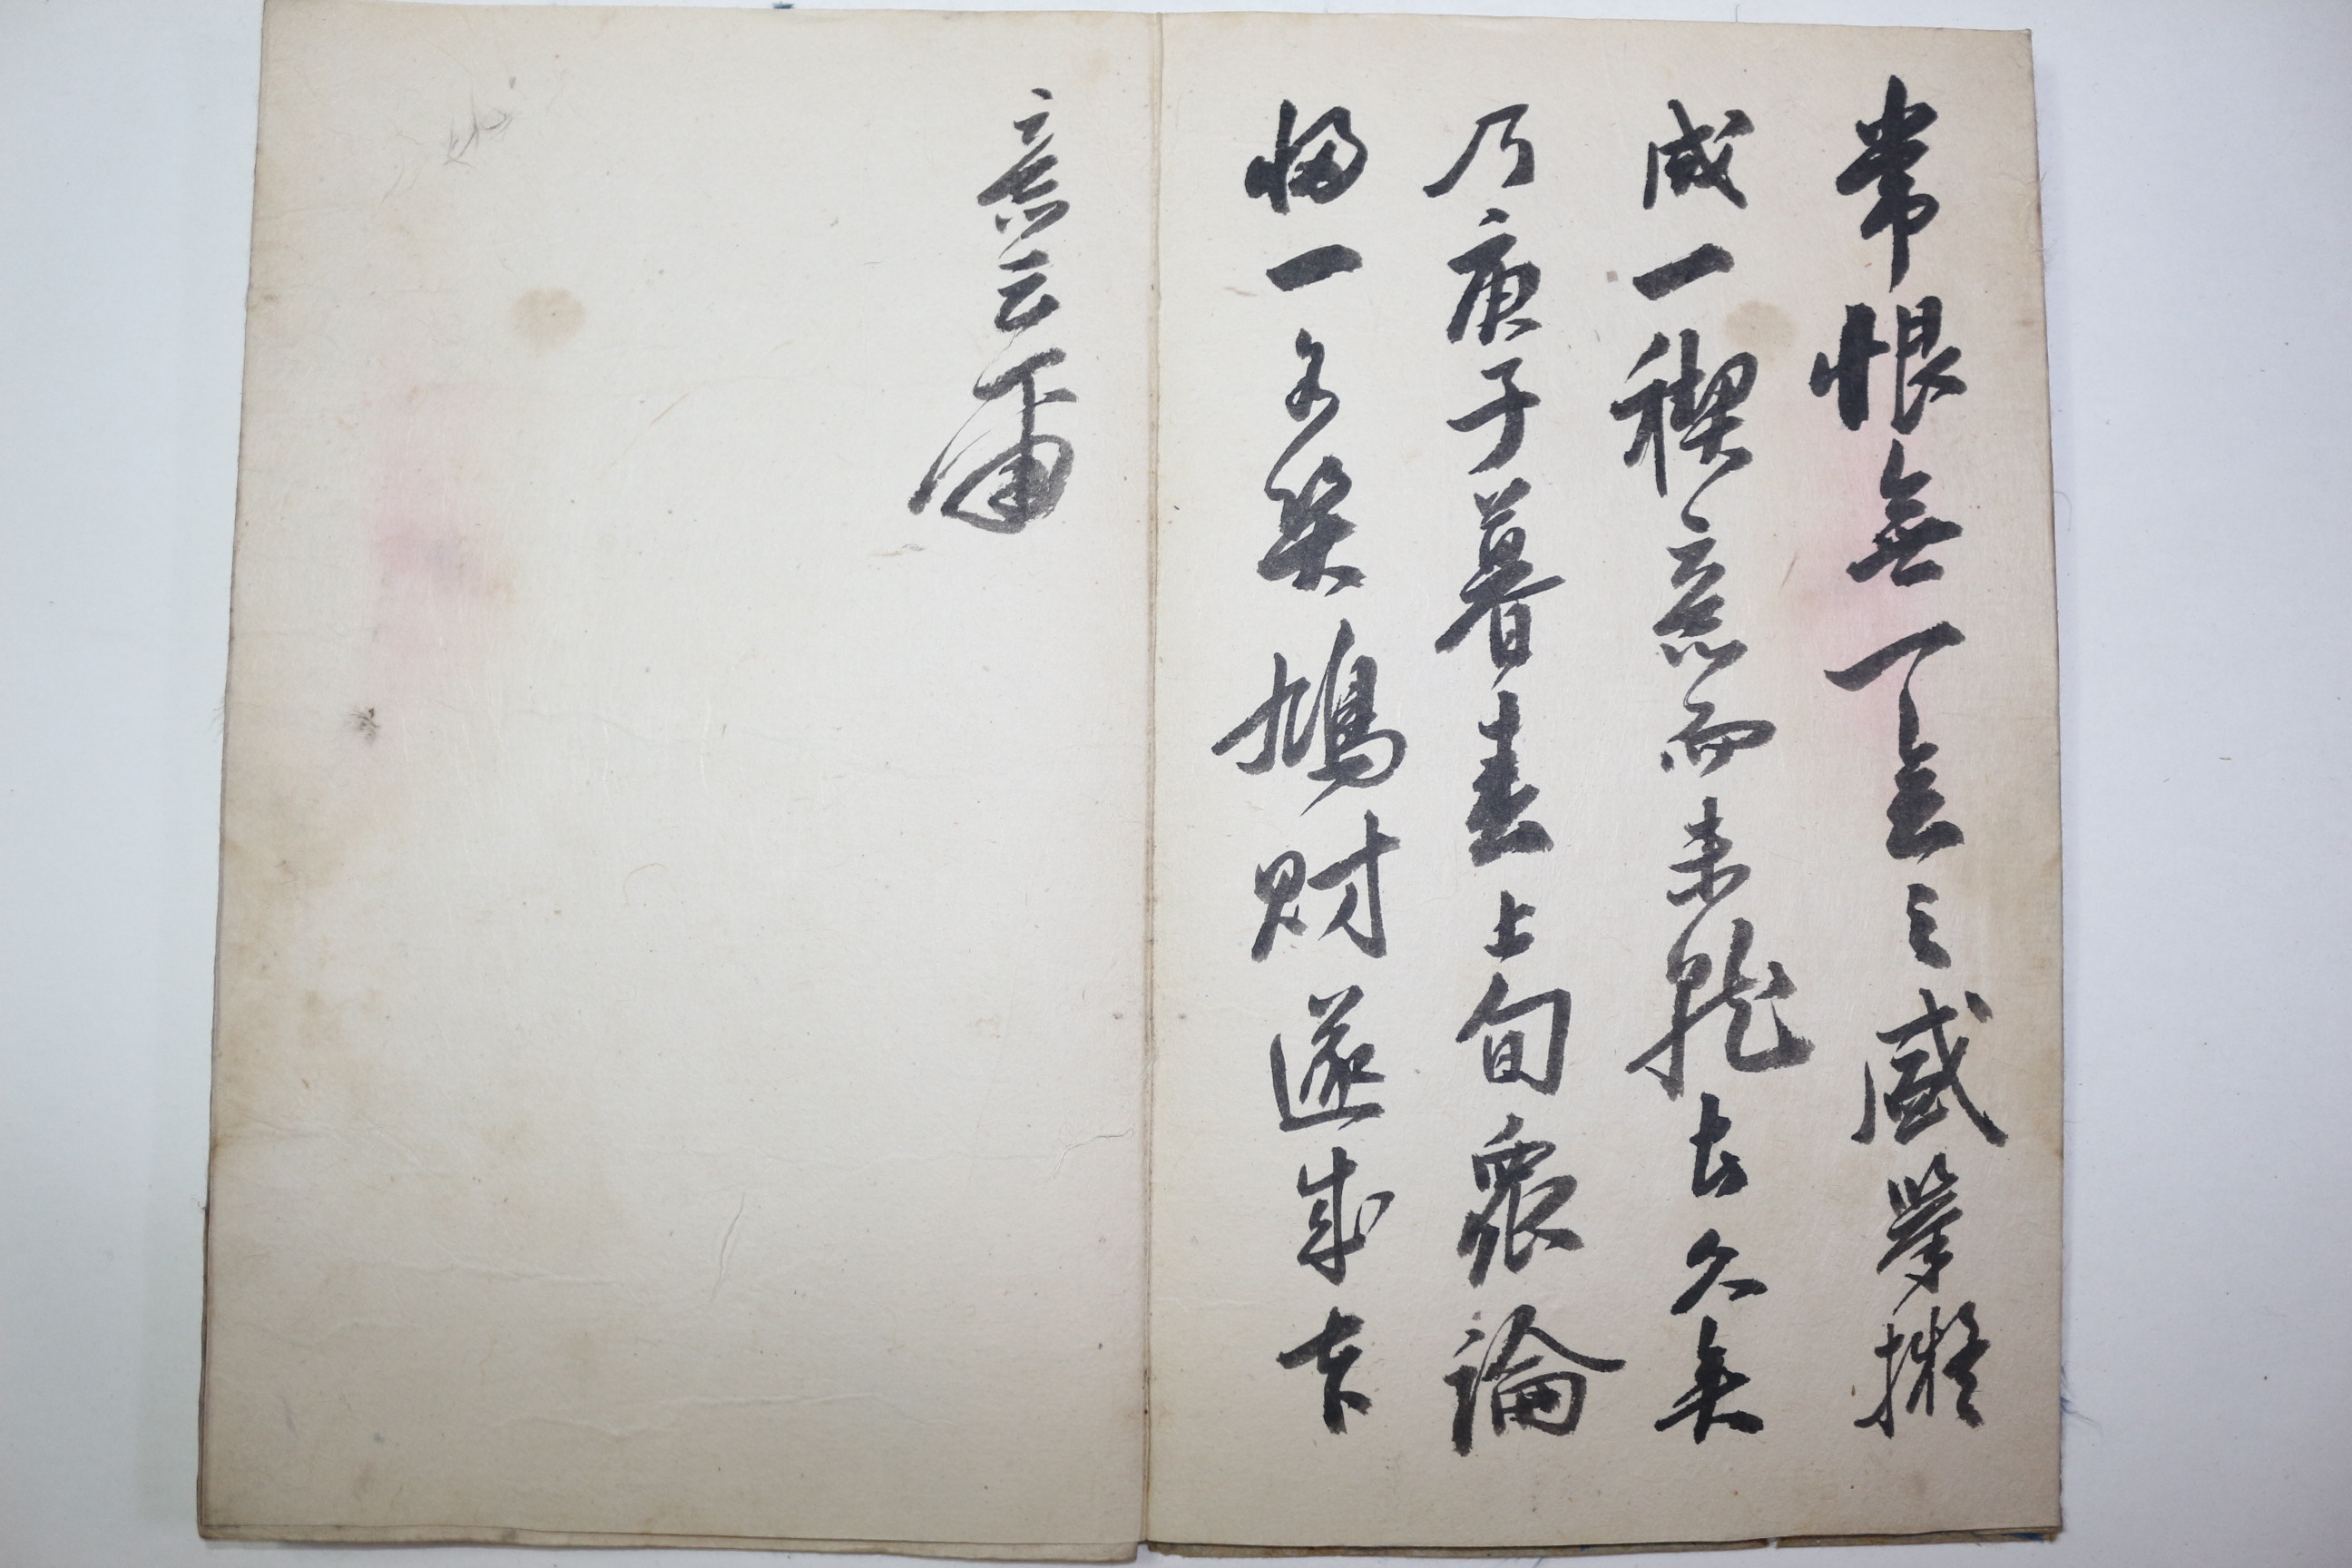 常恨無一會之盛擧擬
成一稧意而未就者久矣
乃庚子暮春上旬衆論
歸一各鳩財遂成
意云爾